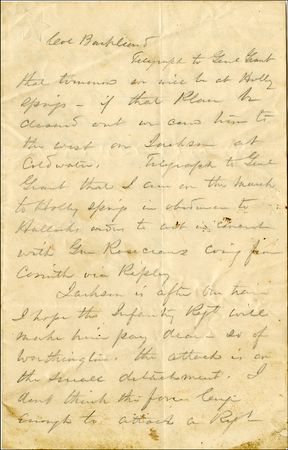 Col
Telegraph to Genl Grant
that tomorrow we will be at Holly
Springs - if that place be
cleaned out we can him to
the west on Jackson at
Coldwater. Telegraph to Genl
Grant that I am on the march
to Holly Springs in obedience to
Hallecks order to act in concert
with Gen Rosecrans coming from
Corinth via Ripley
Jackson is after the train
I hope the Infantry Regt will
make him pay dear - so of
Worthington. the attack is on
the small detachment. I
dont think the force large
enough to attack a Regt